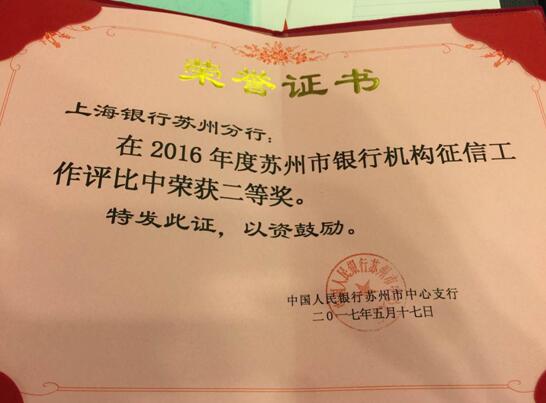 荣誉证书
上海银行苏州分行：
在2016年度苏州市银行机构征信工
作评比中荣获二等奖。
特发此证，以资鼓励。
中国人民银行苏州市中心支行
二〇一七年五月十七日